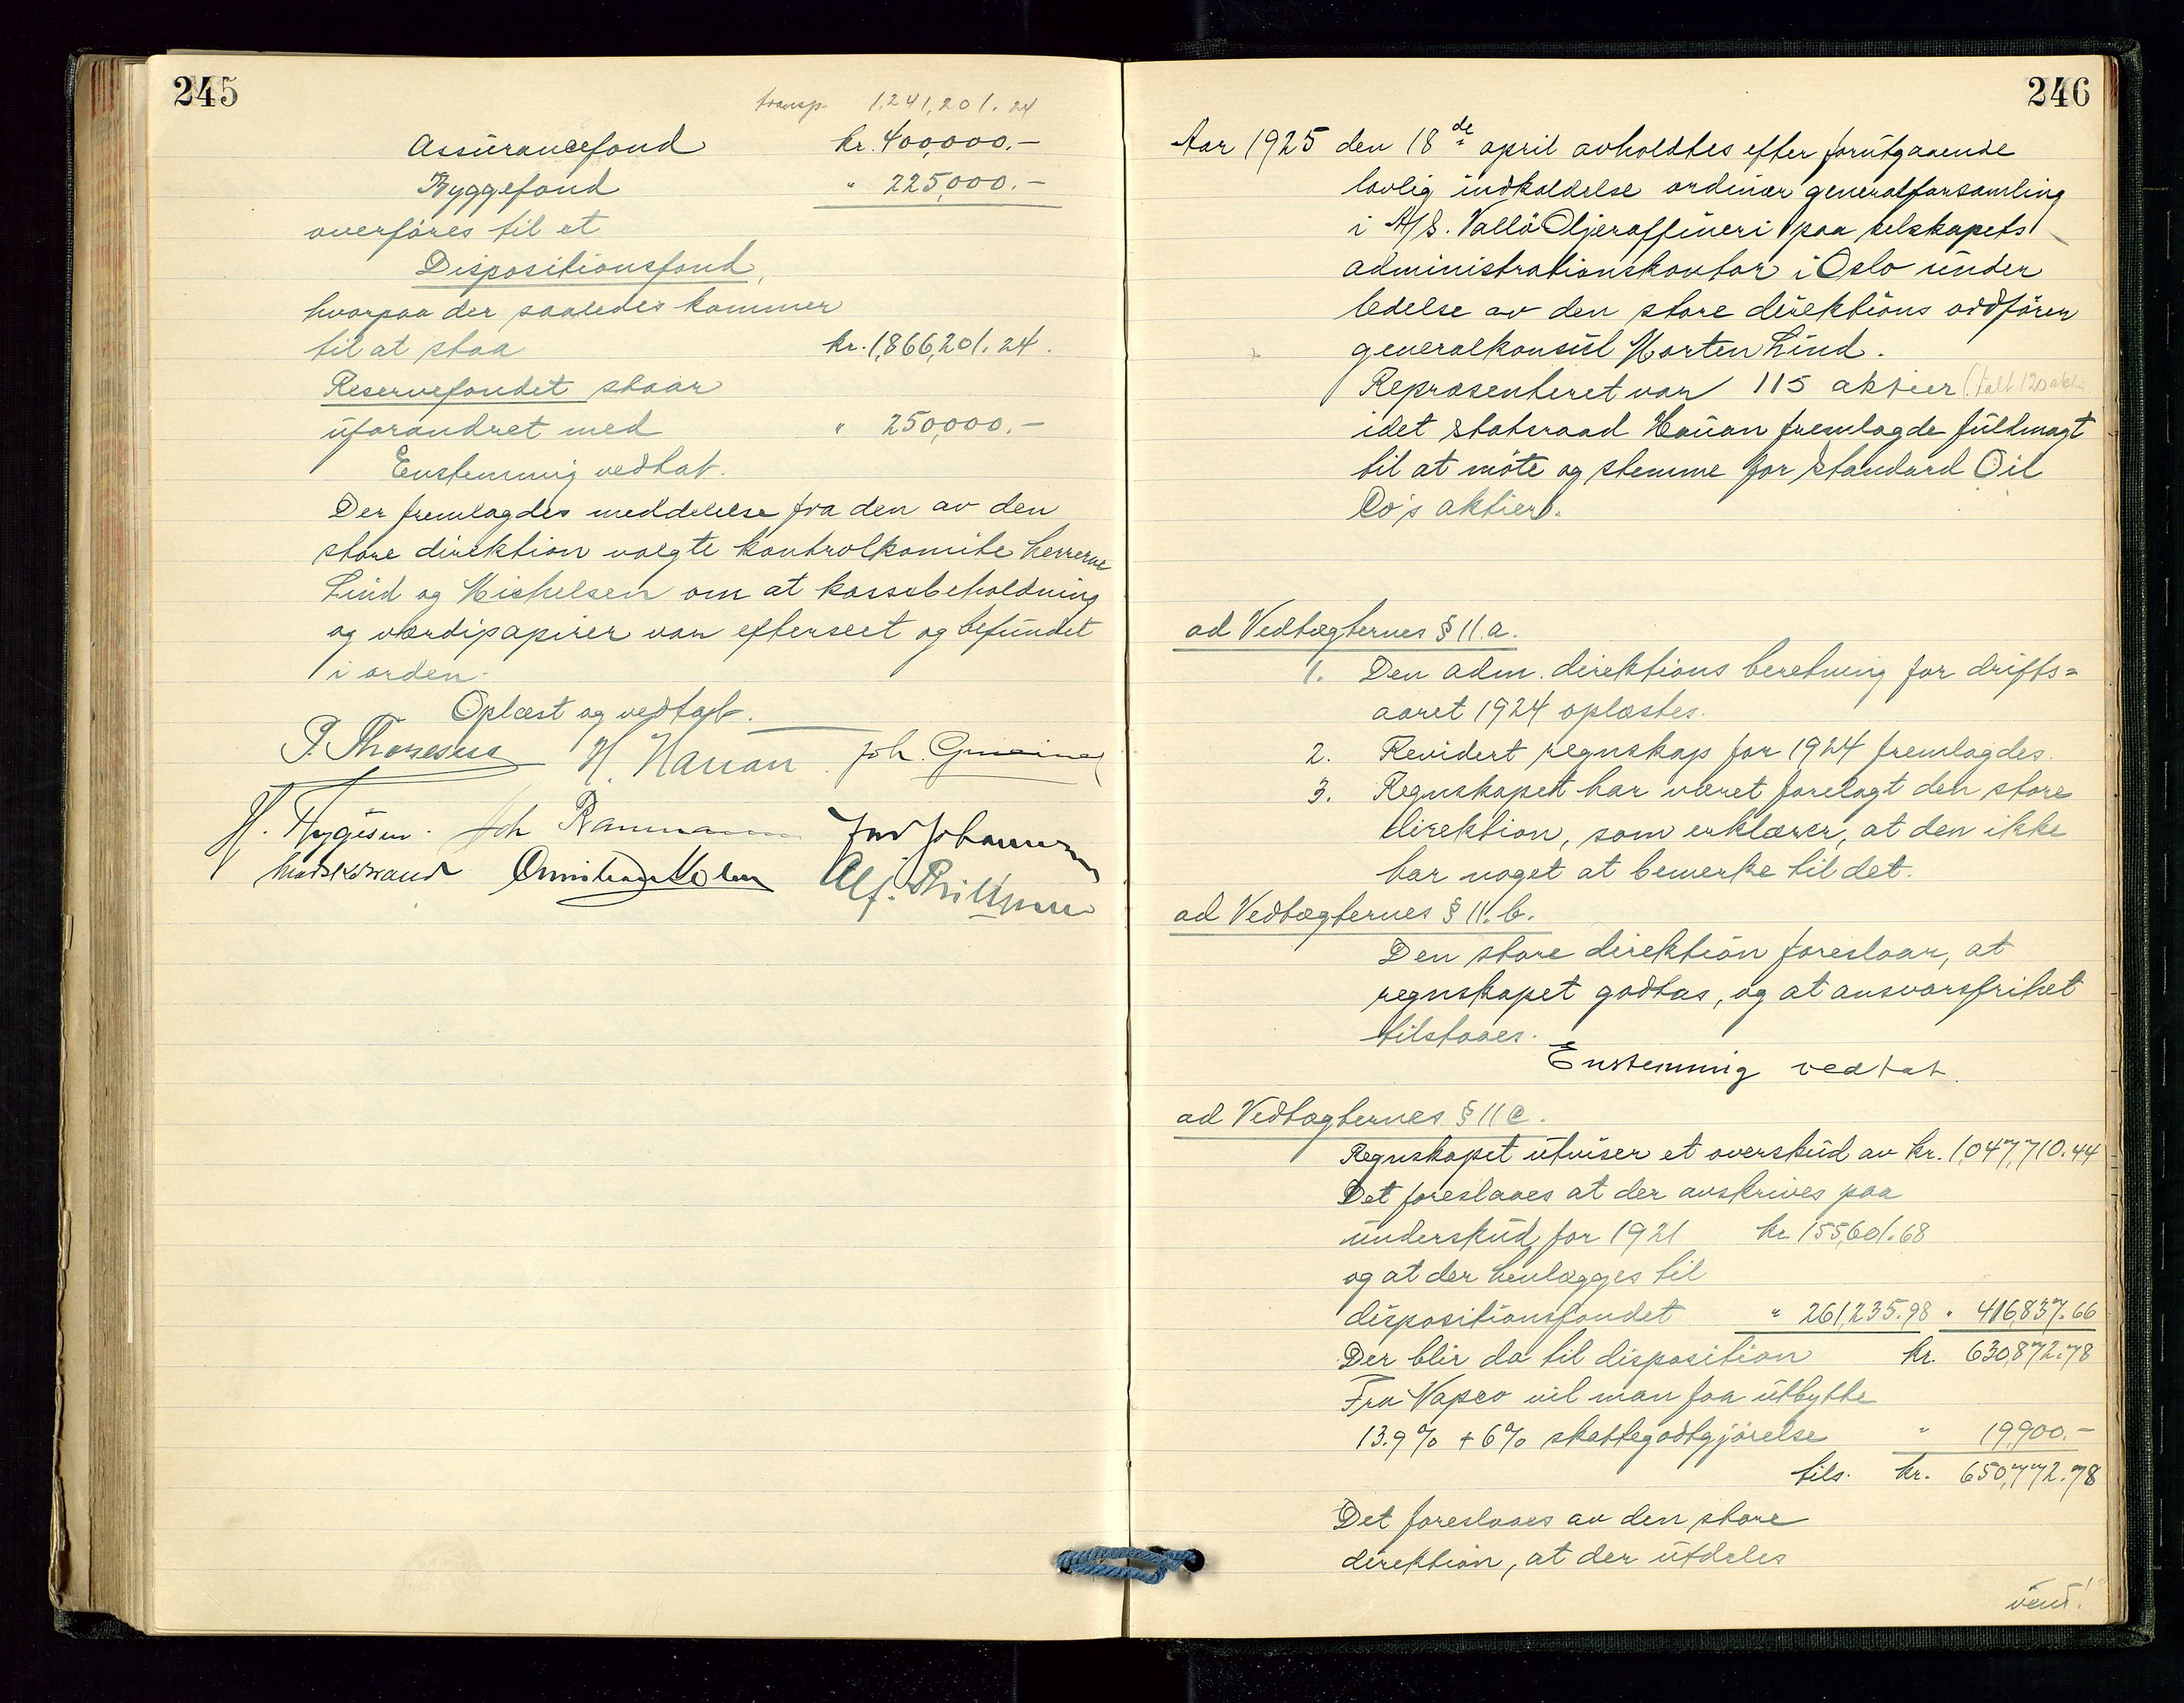 245
transp. 1,241,201.24
Assurancefond kr. 400,000.–
Byggefond " 225,000.–
overføres til et
Dispositionsfond,
hvorpaa der saaledes kommer
til at staa kr. 1,866,201.24.
Reservefondet staar
uforandret med " 250,000.–
Enstemmig vedtat.
Der fremlagdes meddelelse fra den av den
store direktion valgte kontrolkomite herrerne
Lind og Michelsen om at kassebeholdning
og værdipapirer var efterseet og befundet
i orden.
Oplæst og vedtat.
P. Thoresen H. Hauan Joh.
H. Thygesen. Joh Rammann Johannesen
Christian Holm Alf.
246
Aar 1925 den 18de april avholdtes efter forutgaaende
lovlig indkaldelse ordinær generalforsamling
i A/S. Vallö Oljeraffineri paa selskapets
administrationskontor i Oslo under
ledelse av den store direktions ordfører
generalkonsul Morten Lind.
Repræsenteret var 115 aktier (talt 120 aktier
idet statsraad Hauan fremlagde fuldmagt
til at møte og stemme for Standard Oil
Co's aktier).
ad Vedtægternes § 11.a.
1. Den adm. direktions beretning for drifts=
aaret 1924 oplæstes.
2. Revidert regnskap for 1924 fremlagdes.
3. Regnskapet har været forelagt den store
direktion, som erklærer, at den ikke
har noget at bemerke til det.
ad Vedtægternes § 11.b.
Den store direktion foreslaar, at
regnskapet godtas, og at ansvarsfrihet
tilstaaes.
Enstemmig vedtat.
ad Vedtægternes § 11 c.
Regnskapet utviser et overskud av kr. 1,047,710.44
Det foreslaaes at der avskrives paa
underskud for 1921 kr. 155,601.68
og at der henlægges til
dispositionsfondet " 261,235.98 " 416,837.66
Der blir da til disposition kr. 630,872.78
Fra Vapco vil man faa utbytte
13.9% + 6% skattegodtgjørelse " 19,900.–
tils. kr. 650,772.78
Det foreslaaes av den store
direktion, at der utdeles
vend!